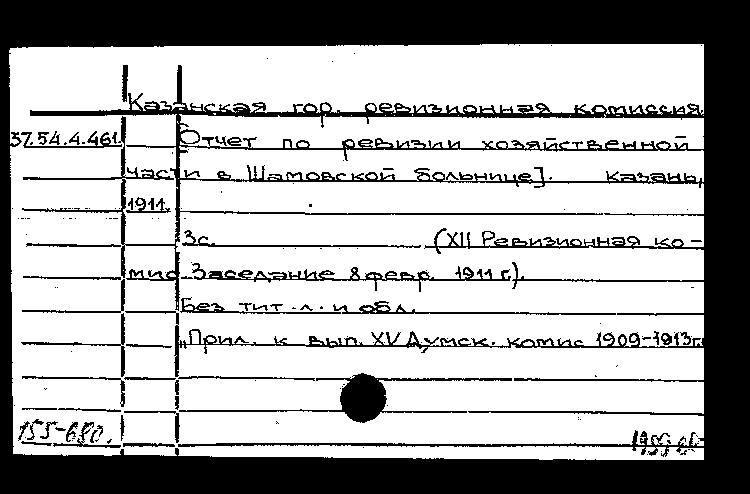 Казанская гор. ревизионная комиссия.
37.54.4.461. [Отчет по ревизии хозяйственной
части в Шамовской больнице]. Казань,
1911.
3с. (XII Ревизионная ко-
мис. Заседание 8 февр. 1911 г.).
Без тит. л. и обл.
„Прил. к вып. XV Думск. комис 1909-1913г.
155-680.